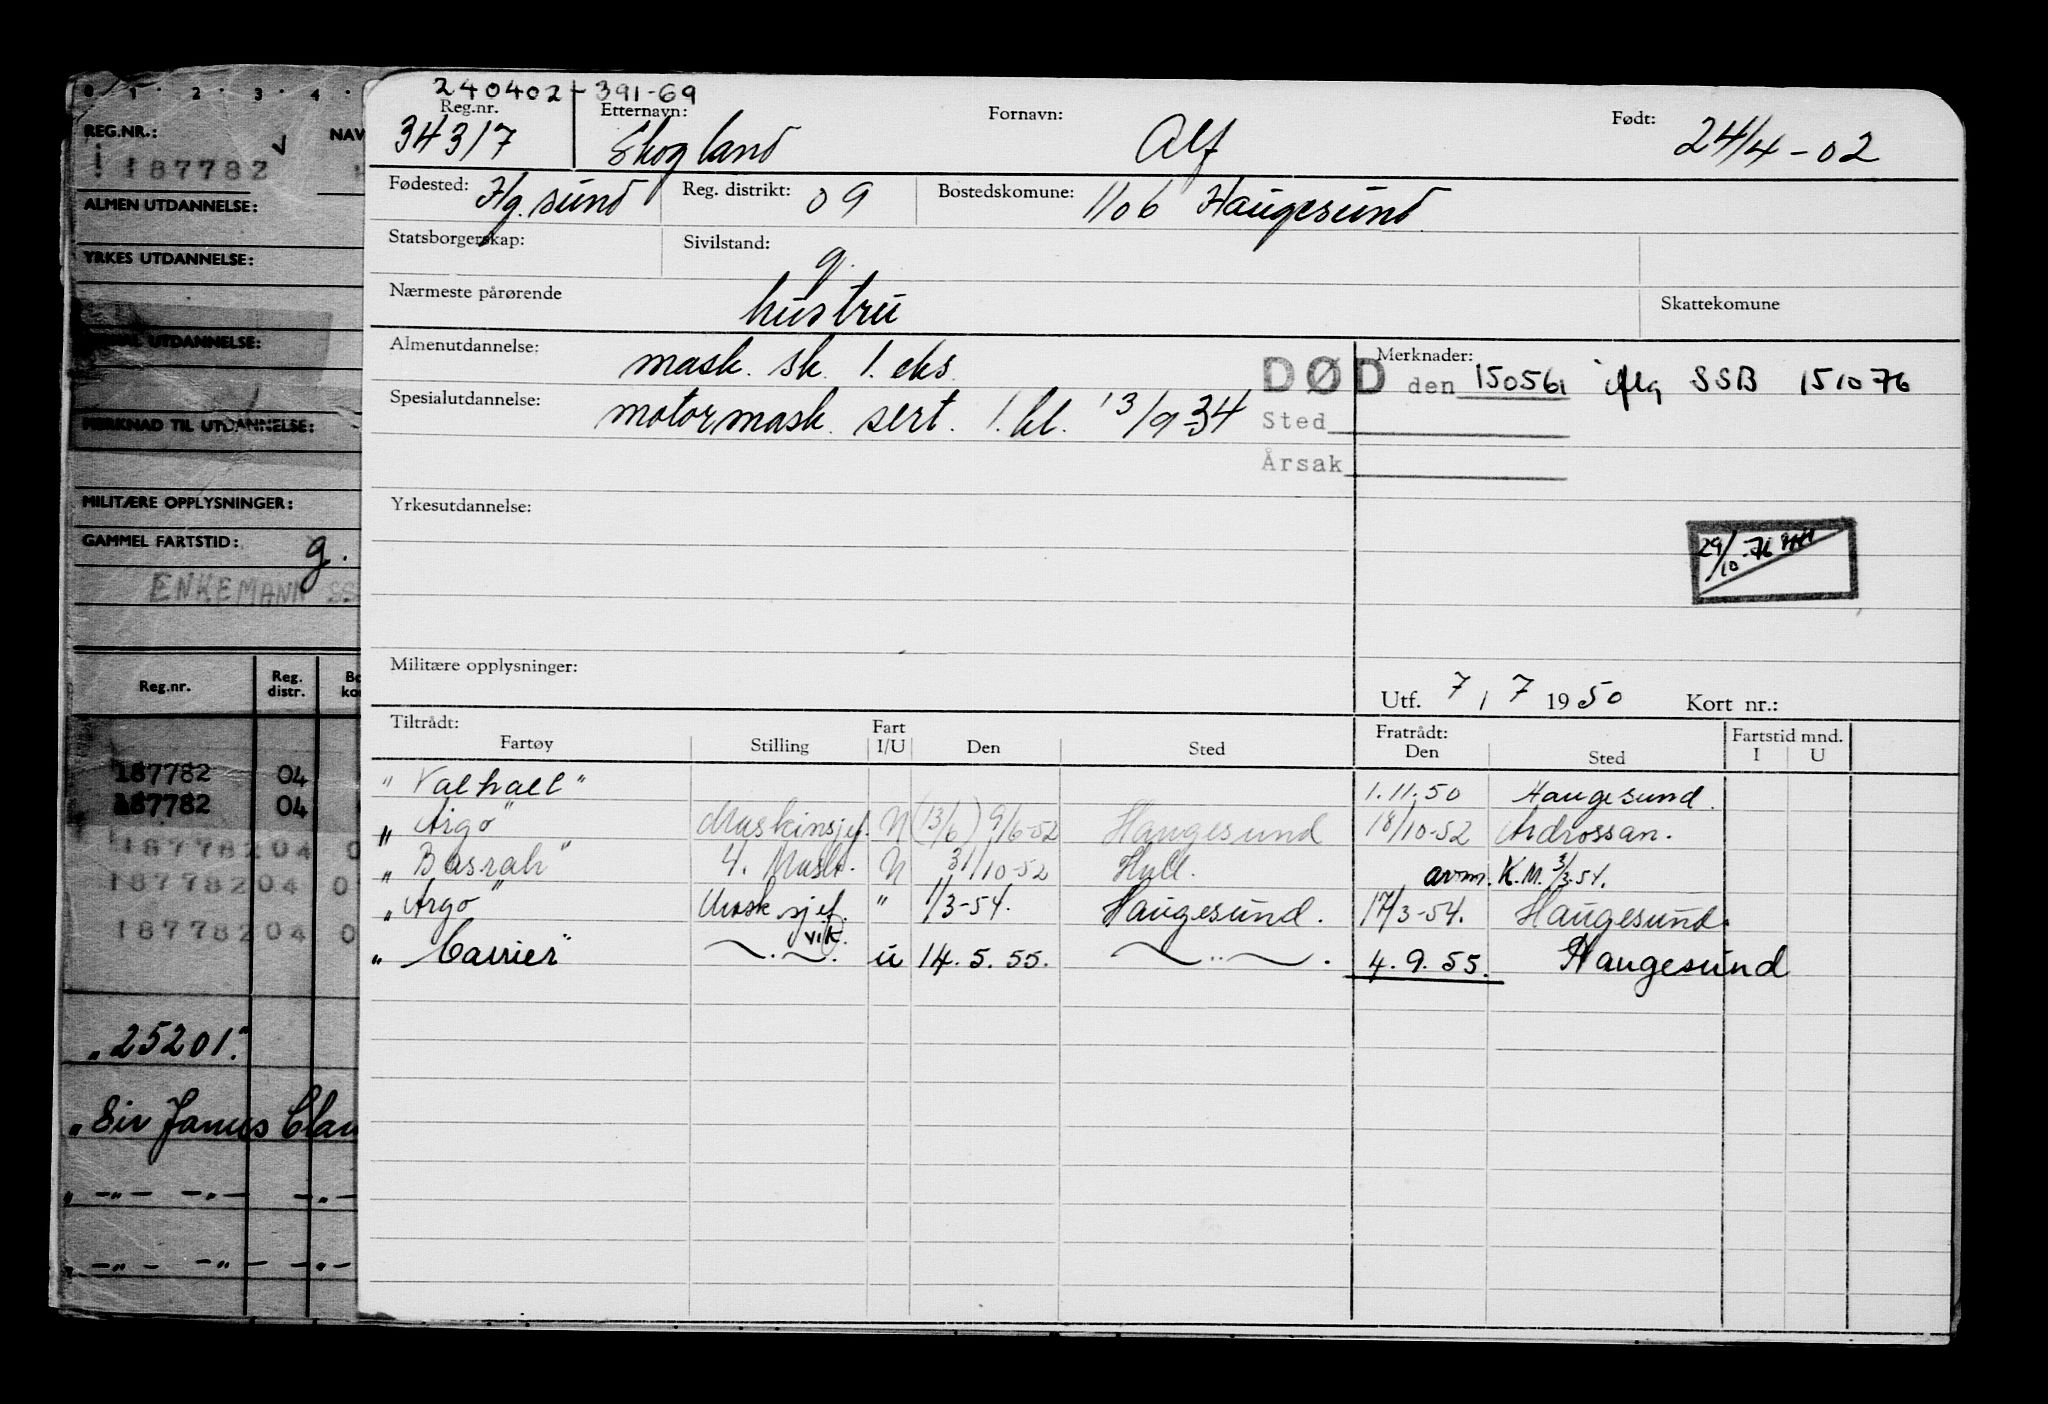 0 1 2 3 4
REG.NR.: NAV
187782
ALMEN UTDANNELSE:
YRKES UTDANNELSE:
UTDANNELSE:
MERKNAD TIL UTDANNELSE:
MILITÆRE OPPLYSNINGER:
GAMMEL FARTSTID: g.
ENKEMANN SS
Reg.nr. Reg. distr. Bo ko
187782 04
187782 04
187782 04 0
187782 04 0
187782 04 0
"25201."
"Sir James Clar
240402-391-69
Reg.nr. Etternavn: Fornavn: Født:
34317 Skogland Alf 24/4-02
Fødested: Hg.sund Reg. distrikt: 09 Bostedskomune: 1106 Haugesund
Statsborgerskap: Sivilstand: g.
Nærmeste pårørende hustru Skattekomune
Almenutdannelse: mask. sk. 1. eks. Merknader:
DØD den 150561 iflg SSB 151076
Spesialutdannelse: motormask. sert. 1. kl. 13/9-34
Sted
Årsak
Yrkesutdannelse:
29/10-76
Militære opplysninger:
Utf. 7/7 1950 Kort nr.:
Tiltrådt: Fart Fratrådt: Fartstid mnd.
Fartøy Stilling I/U Den Sted Den Sted I U
"Valhall" 1.11.50 Haugesund.
"Argo" Maskinsjef. N (13/6) 9/6-52 Haugesund 18/10-52 Ardrossan.
"Basrah" 4. Mask. N 31/10-52 Hull. avm. K.M. 3/3-54.
"Argo" Mask.sjef. " 1/3-54. Haugesund. 17/3-54. Haugesund.
"Carrier" —..— vik. u 14.5.55. —..—. 4.9.55. Haugesund